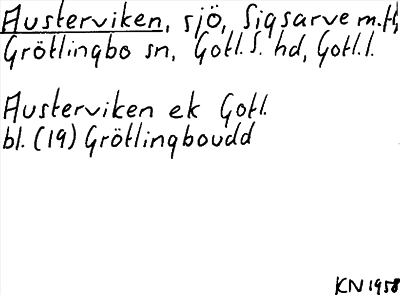 Austerviken, sjö, Sigsarve m.fl,
Grötlingbo sn, Gotl. S. hd, Gotl. l.
Austerviken ek Gotl.
bl. (19) Grötlingboudd
KN 1958